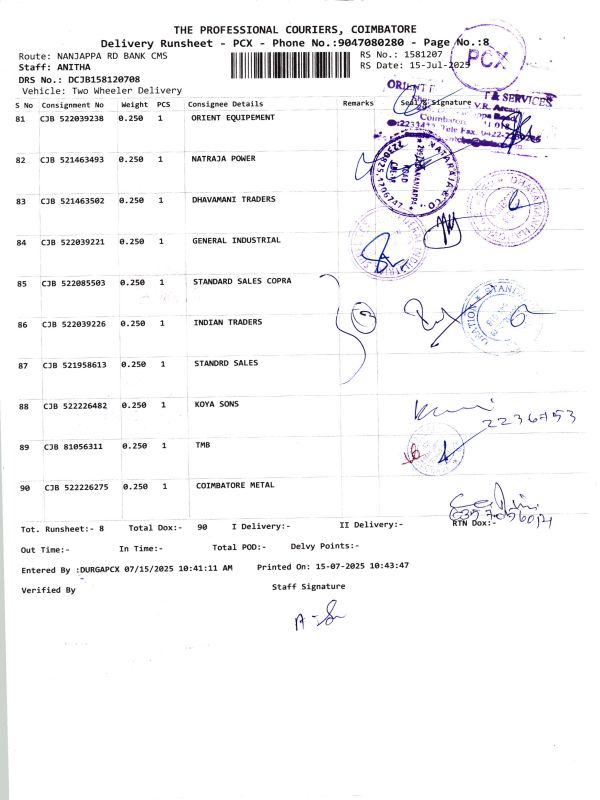 THE PROFESSIONAL COURIERS, COIMBATORE
Delivery Runsheet - PCX - Phone No.:9047080280 - Page No.:8
PCX
Route: NANJAPPA RD BANK CMS
RS No.: 1581207
Staff: ANITHA
RS Date: 15-Jul-2025
DRS No.: DCJB158120708
Vehicle: Two Wheeler Delivery
S No Consignment No Weight PCS Consignee Details Remarks Seal & Signature
81 CJB 522039238 0.250 1 ORIENT EQUIPEMENT
ORIENT
& SERVICES
V.R. Arcade
Coimbatore
82 CJB 521463493 0.250 1 NATRAJA POWER
NATARAJA & CO.
83 CJB 521463502 0.250 1 DHAVAMANI TRADERS
84 CJB 522039221 0.250 1 GENERAL INDUSTRIAL
85 CJB 522085503 0.250 1 STANDARD SALES COPRA
86 CJB 522039226 0.250 1 INDIAN TRADERS
87 CJB 521958613 0.250 1 STANDRD SALES
88 CJB 522226482 0.250 1 KOYA SONS
2236753
89 CJB 81056311 0.250 1 TMB
90 CJB 522226275 0.250 1 COIMBATORE METAL
Tot. Runsheet:- 8 Total Dox:- 90 I Delivery:- II Delivery:- RTN Dox:-
Out Time:- In Time:- Total POD:- Delvy Points:-
Entered By :DURGAPCX 07/15/2025 10:41:11 AM Printed On: 15-07-2025 10:43:47
Verified By
Staff Signature